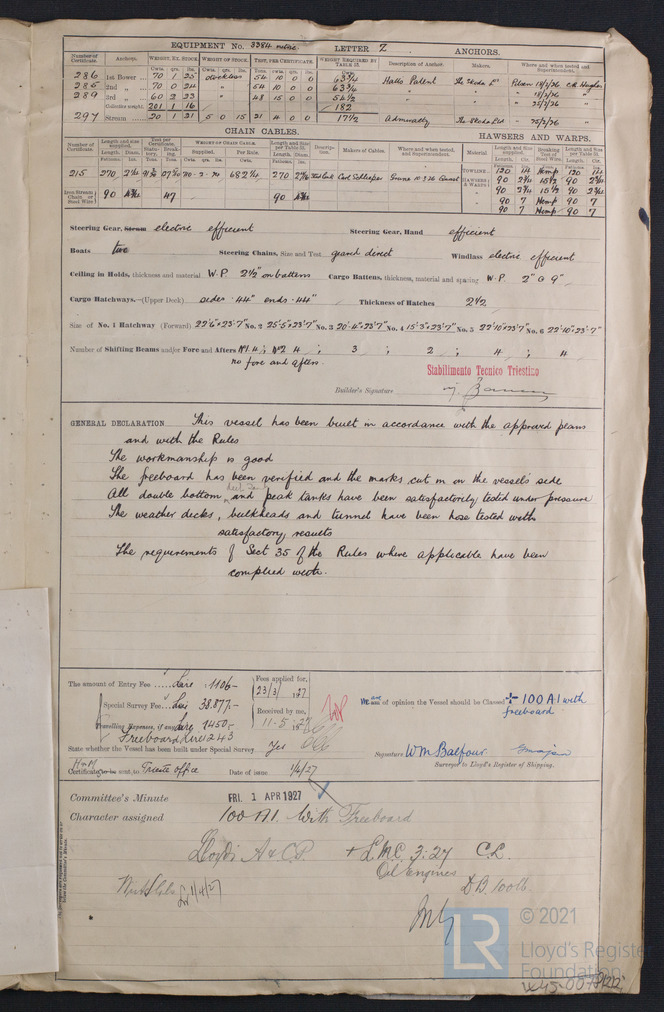 EQUIPMENT No. 3384 LETTER Z ANCHORS.
Number of Certificate. Anchors. WEIGHT, EX. STOCK. WEIGHT OF STOCK. TEST, PER CERTIFICATE. WEIGHT REQUIRED BY TABLE 31. Description of Anchor. Makers. Where and when tested and Superintendent.
286 1st Bower ... 70 1 25 Stockless 54 10 0 0 63¾ Halls Patent The Skoda Ld Pilsen 18/2/26
285 2nd „ ... 70 0 24 " 54 10 0 0 63¾ " " " 18/2/26 "
289 3rd „ ... 60 2 23 " 48 15 0 0 54½ " " " 25/2/26 "
Collective weight. 201 1 16 182
297 Stream ... 20 1 21 5 0 15 21 4 0 0 17½ Admiralty The Skoda Ltd " 25/2/26 "
CHAIN CABLES. HAWSERS AND WARPS.
Number of Certificate. Length and size supplied. Test per Certificate. WEIGHT OF CHAIN CABLE. Length and Size per Table 31. Description. Makers of Cables. Where and when tested, and Superintendent. Material. Length and Size supplied. Breaking Test of Steel Wire. Length and Size per Table 31.
215 270 270 Carl Schlieper Grune 10.3.26
TOWLINE 120 14 Hemp 120 14
HAWSERS & WARPS 90 15½ 90
" 90 15½ 90
" 90 7 Hemp 90 7
" 90 7 Hemp 90 7
Iron Stream Chain or Steel Wire 90 47 90
Steering Gear, Steam electric efficient Steering Gear, Hand efficient
Boats two Steering Chains, Size and Test grand direct Windlass electric efficient
Ceiling in Holds, thickness and material W.P. 2½" on battens Cargo Battens, thickness, material and spacing W.P. 2" @ 9"
Cargo Hatchways.—(Upper Deck) sides 44" ends 44" Thickness of Hatches 2½
Size of No. 1 Hatchway (Forward) 22'6"x23'7" No. 2 25'5"x23'7" No. 3 20'4"x23'7" No. 4 15'3"x23'7" No. 5 22'10"x23'7" No. 6 22'10"x23'7"
Number of Shifting Beams and/or Fore and Afters No 1. 4; No 2 4 ; 3 ; 2 ; 4 ; 4
no fore and afters
Stabilimento Tecnico Triestino
Builder's Signature
GENERAL DECLARATION This vessel has been built in accordance with the approved plans
and with the Rules
The workmanship is good
The freeboard has been verified and the marks cut in on the vessel's side
All double bottom, deep tanks and peak tanks have been satisfactorily tested under pressure
The weather decks, bulkheads and tunnel have been hose tested with
satisfactory results
The requirements of Sect 35 of the Rules where applicable have been
complied with.
The amount of Entry Fee ..... Lire 1106- Fees applied for, 23/3/27
Special Survey Fee... Lire 38.877.- Received by me, 11-5-27
Travelling Expenses, if any Lire 1450.-
Freeboard Lire 1243
We are of opinion the Vessel should be Classed + 100 A1 with
freeboard
State whether the Vessel has been built under Special Survey Yes
Signature WM Balfour
Surveyor to Lloyd's Register of Shipping.
Certificate to be sent to Trieste office Date of issue 1/4/27
Committee's Minute FRI. 1 APR 1927
Character assigned 100 A1. With Freeboard
Lloyds A & C.P. + L.M.C. 3.27 C.L.
Oil Engines
1/4/27 D.B. 100 lb
LR
© 2021
Lloyd's Register
Foundation